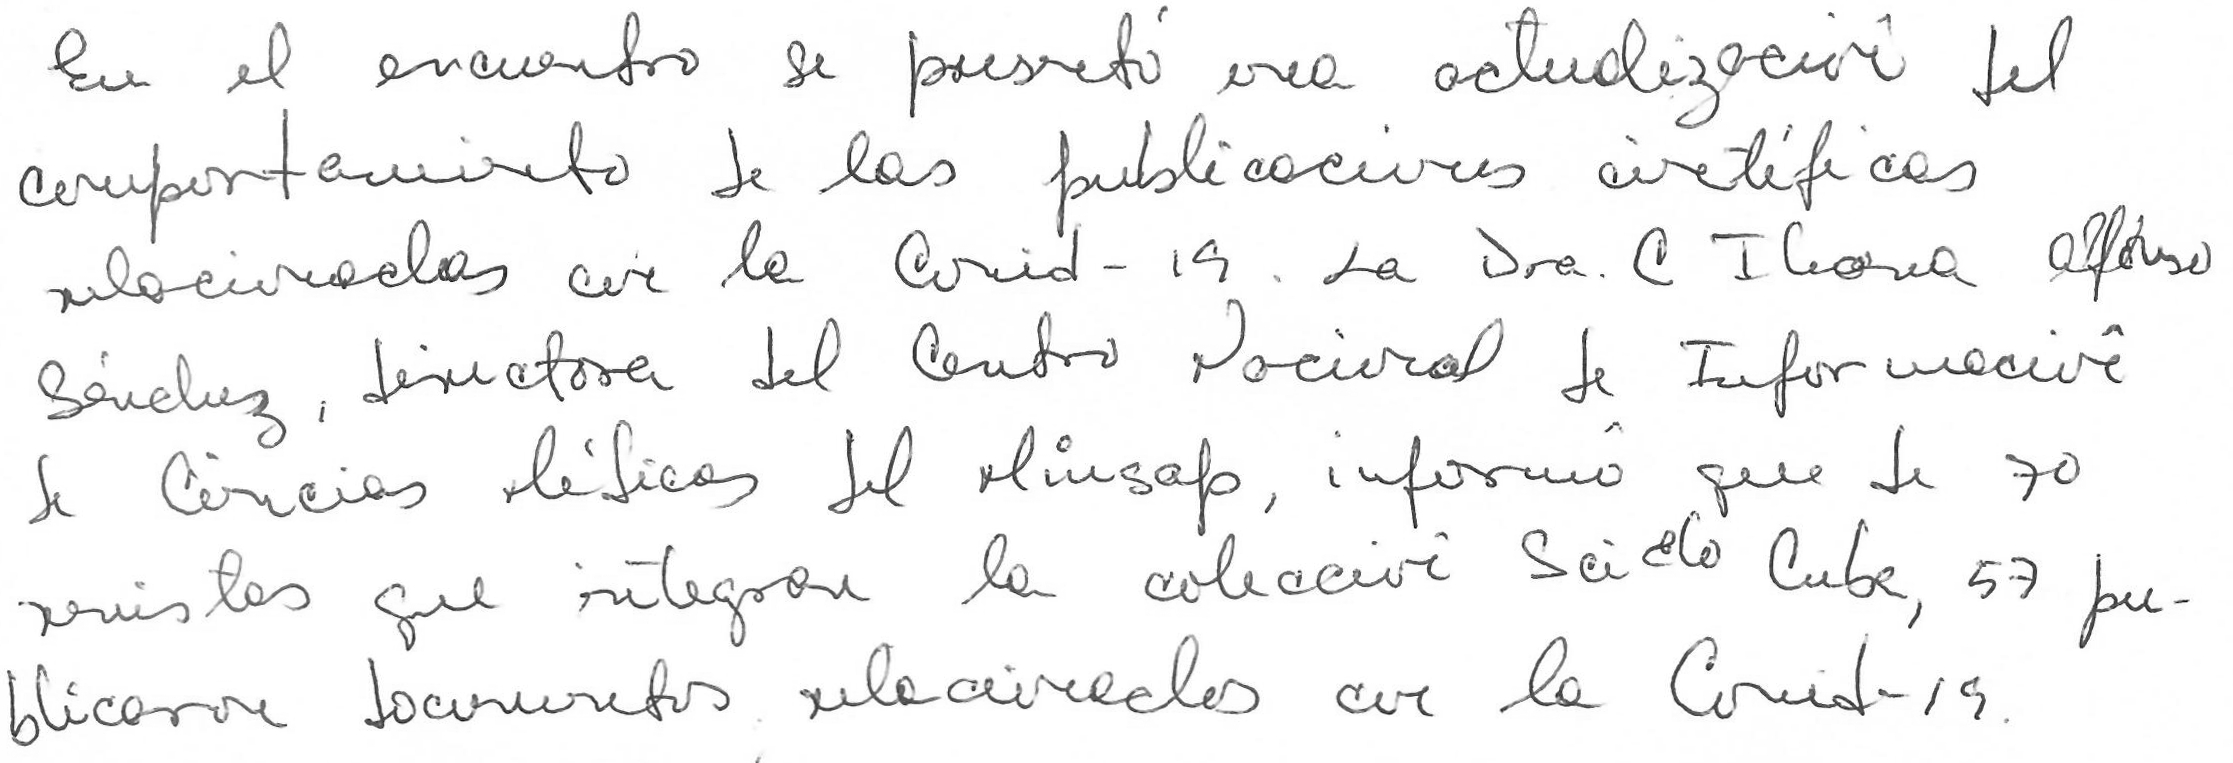 En el encuentro se presentó una actualización del
comportamiento de las publicaciones científicas
relacionadas con la Covid-19. La Dra. C Ileana Alfonso
Sánchez, directora del Centro Nacional de Información
de Ciencias Médicas del Minsap, informó que de 70
revistas que integran la colección Scielo Cuba, 57 pu-
blicaron documentos relacionados con la Covid-19.